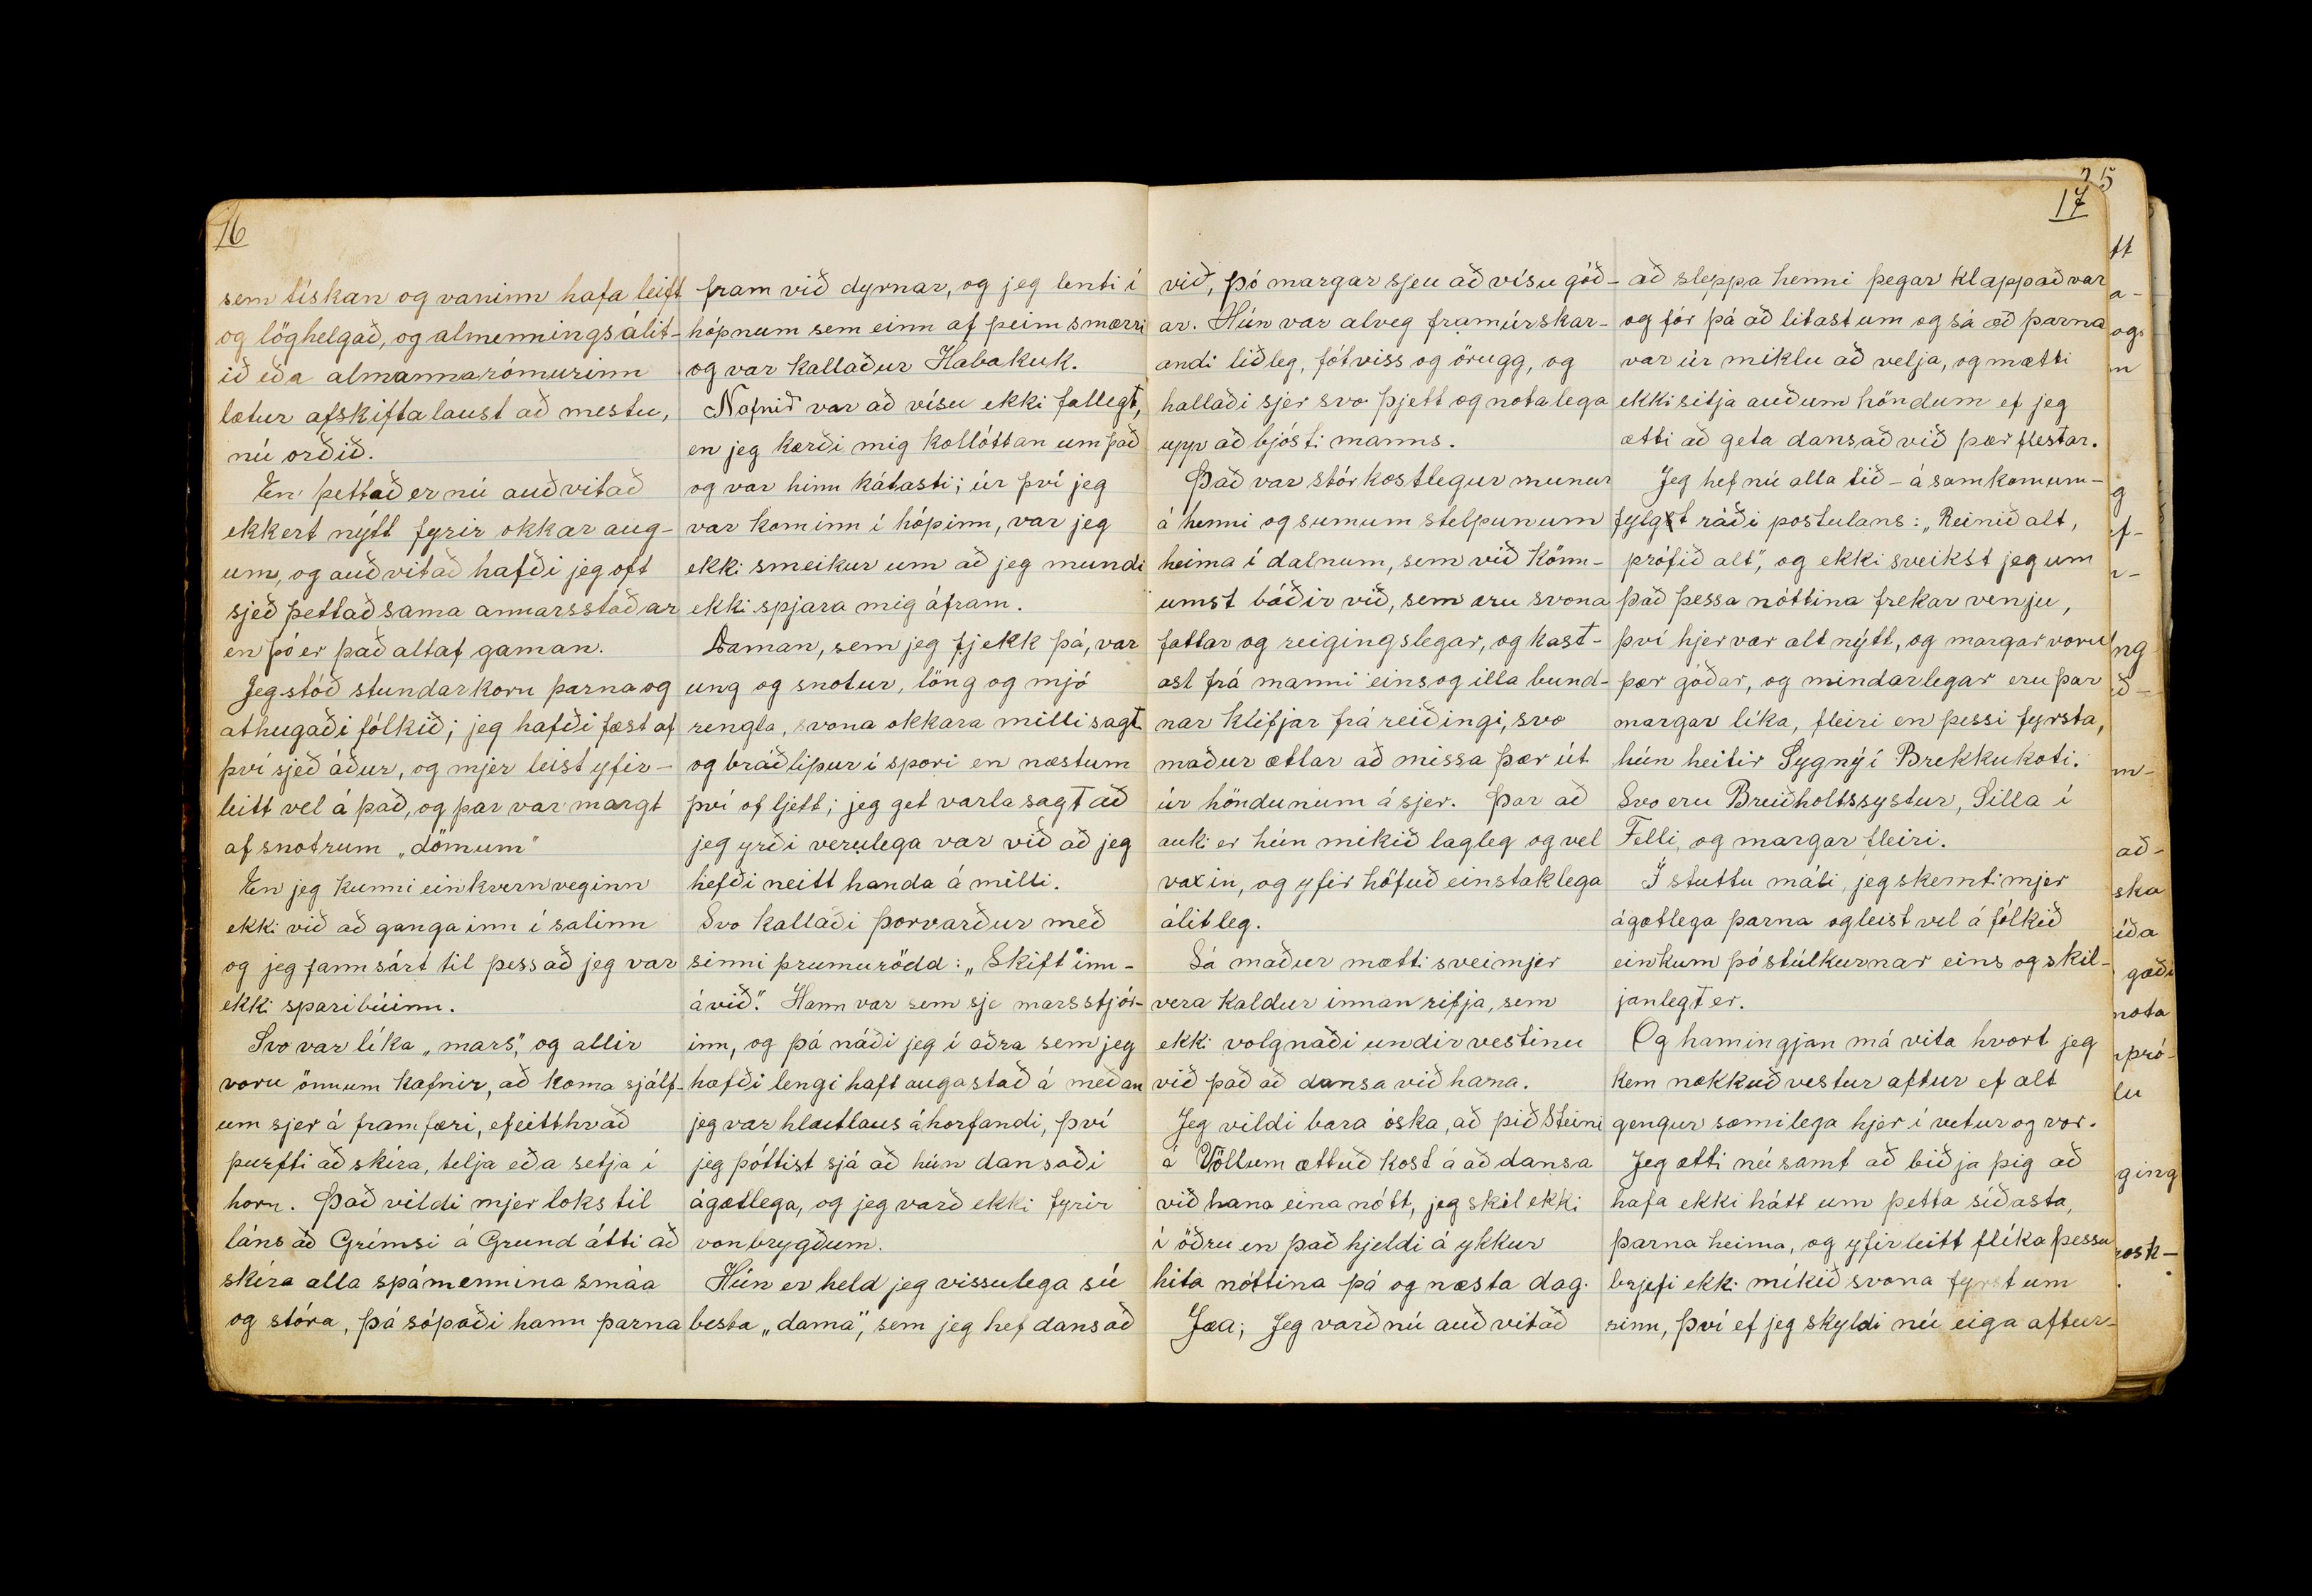 16
sem tískan og vaninn hafa leift
og löghelgað, og almenningsálit-
ið eða almannarómurinn
lætur afskiftalaust að mestu,
nú orðið.
En þettað er nú auðvitað
ekkert nýtt fyrir okkar aug-
um, og auðvitað hafði jeg oft
sjeð þettað sama annarsstaðar
en þó er það altaf gaman.
Jeg stóð stundarkorn þarna og
athugaði fólkið; jeg hafði fæst af
því sjeð áður, og mjer leist yfir-
leitt vel á það, og þar var margt
af snotrum „dömum"
En jeg kunni einhvernveginn
ekki við að ganga inn í salinn
og jeg fann sárt til þess að jeg var
ekki sparibúinn.
Svo var líka „mars", og allir
voru önnum kafnir, að koma sjálf-
um sjer á framfæri, ef eitthvað
þurfti að skíra, telja eða setja í
horn. Það vildi mjer loks til
láns að Grímsi á Grund átti að
skíra alla spámennina smáa
og stóra, þá sópaði hann þarna
fram við dyrnar, og jeg lenti í
hópnum sem einn af þeim smærri
og var kallaður Habakuk.
Nafnið var að vísu ekki fallegt,
en jeg kærði mig kollóttan um það
og var hinn kátasti; úr því jeg
var kominn í hópinn, var jeg
ekki smeikur um að jeg mundi
ekki spjara mig áfram.
Daman, sem jeg fjekk þá, var
ung og snotur, löng og mjó
rengla, svona okkara milli sagt
og bráðlipur í spori en næstum
því of ljett; jeg get varla sagt að
jeg yrði verulega var við að jeg
hefði neitt handa á milli.
Svo kallaði Þorvarður með
sinni þrumurödd: „Skift inn-
á við". Hann var sem sje marsstjór-
inn, og þá náði jeg í aðra sem jeg
hafði lengi haft augastað á meðan
jeg var hlutlaus áhorfandi, því
jeg þóttist sjá að hún dansaði
ágætlega, og jeg varð ekki fyrir
vonbrygðum.
Hún er held jeg vissulega sú
besta „dama", sem jeg hef dansað
17
við, þó margar sjeu að vísu góð-
ar. Hún var alveg framúrskar-
andi liðleg, fótviss og örugg, og
hallaði sjer svo þjett og notalega
upp að bjósti manns.
Það var stórkostlegur munur
á henni og sumum stelpunum
heima í dalnum, sem við könn-
umst báðir við, sem eru svona
fattar og reigingslegar, og kast-
ast frá manni eins og illa bund-
nar klifjar frá reiðingi, svo
maður ætlar að missa þær út
úr höndunum á sjer. Þar að
auki er hún mikið lagleg og vel
vaxin, og yfir höfuð einstaklega
álitleg.
Sá maður mætti sveimjer
vera kaldur innan rifja, sem
ekki volgnaði undir vestinu
við það að dansa við hana.
Jeg vildi bara óska, að þið Steini
á Völlum ættuð kost á að dansa
við hana eina nótt, jeg skil ekki
í öðru en það hjeldi á ykkur
hita nóttina þá og næsta dag.
Jæa; Jeg varð nú auðvitað
að sleppa henni þegar klappað var
og fór þá að litast um og sá að þarna
var úr miklu að velja, og mætti
ekki sitja auðum höndum ef jeg
ætti að geta dansað við þær flestar.
Jeg hef nú alla tíð - á samkomum -
fylgt ráði postulans: „Reinið alt,
prófið alt", og ekki sveikst jeg um
það þessa nóttina frekar venju,
því hjer var alt nýtt, og margar voru
þær góðar, og mindarlegar eru þar
margar líka, fleiri en þessi fyrsta,
hún heitir Sygný í Brekkukoti.
Svo eru Breiðholtssystur, Silla í
Felli, og margar fleiri.
Í stuttu máli, jeg skemti mjer
ágætlega þarna og leist vel á fólkið
einkum þó stúlkurnar eins og skil-
janlegt er.
Og hamingjan má vita hvort jeg
kem nokkuð vestur aftur ef alt
gengur sæmilega hjer í vetur og vor.
Jeg ætti nú samt að biðja þig að
hafa ekki hátt um þetta síðasta,
þarna heima, og yfirleitt flíka þessu
brjefi ekki mikið svona fyrst um
sinn, því ef jeg skyldi nú eiga aftur-
25
tt
a-
ogs
n
g
ef-
r-
ng
ið-
m-
að-
ska
íða
gæði
nota
pró-
lu
ging
rosk-